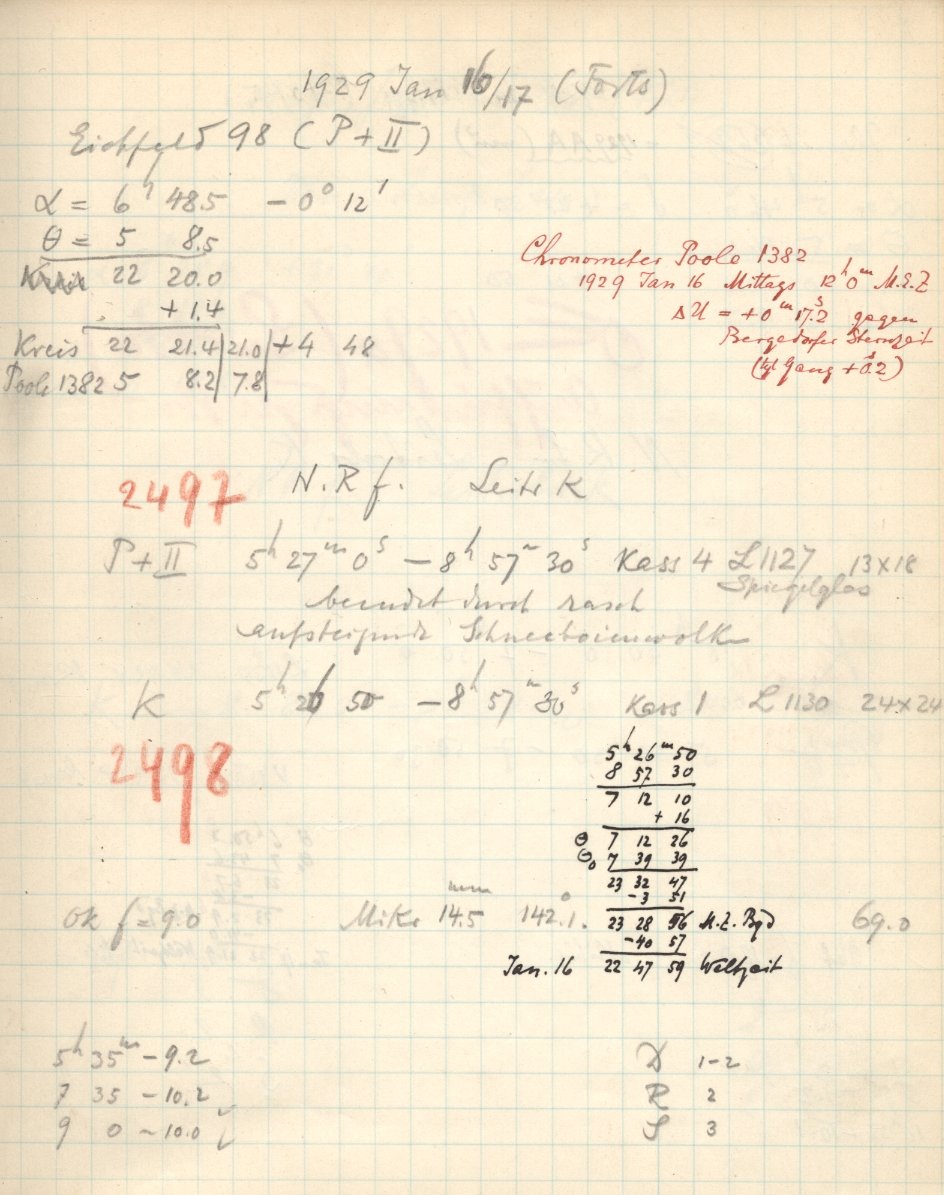 1929 Jan 16/17 (Forts)
Eichfeld 98 (P + II)
α = 6h 48.5 − 0° 12'
θ = 5 8.5
22 20.0
+ 1.4
Kreis 22 21.4 | 21.0 | + 4 48
Poole 1382 5 8.2 | 7.8 |
Chronometer Poole 1382
1929 Jan 16 Mittags 12h 0m M.E.Z
ΔU = +0m 17.2s gegen
Bergedorfer Sternzeit
(tgl Gang + 0.2s)
2497 N.R f. Leitr K
P + II 5h 27m 0s − 8h 57m 30s Kass 4 L 1127 13×18
Spiegelglas
beendet durch rasch
aufsteigende Schneeboienwolke
K 5h 26 50 − 8h 57m 30s Kass 1 L 1130 24×24
2498
5h 26m 50
8 57 30
7 12 10
+ 16
θ 7 12 26
θ0 7 39 39
23 32 47
−3 51
ok f = 9.0 Mikr 14.5mm 142°.1. 23 28 56 M.Z. Bgd 69.0
−40 57
Jan. 16 22 47 59 Weltzeit
5h 35m − 9.2 D 1-2
7 35 − 10.2 R 2
9 0 − 10.0 S 3